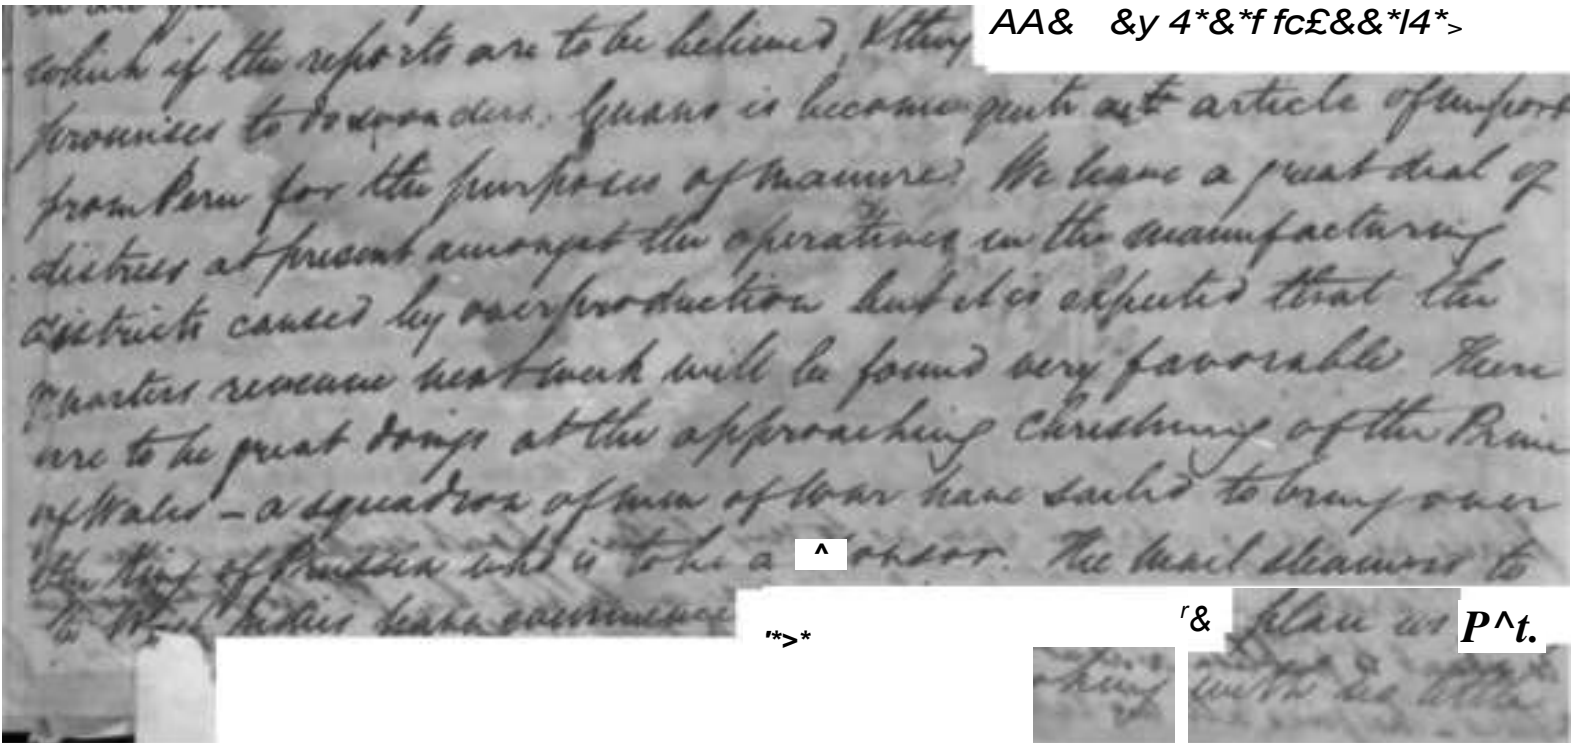 AA& &y 4*&*f fc£&&*l4*>
which if the reports are to be believed, & they
promises to do wonders. Guano is become quite an article of import
from Peru for the purposes of manure. We have a great deal of
distress at present amongst the operatives in the manufacturing
districts caused by overproduction but it is expected that the
quarters revenue next week will be found very favorable There
are to be great doings at the approaching christening of the Prince
of Wales – a squadron of men of war have sailed to bring over
the King of Prussia who is to be a ^ onsor. The mail steamers to
the West Indies have commence
'*>* r& place us P^t.
with as little